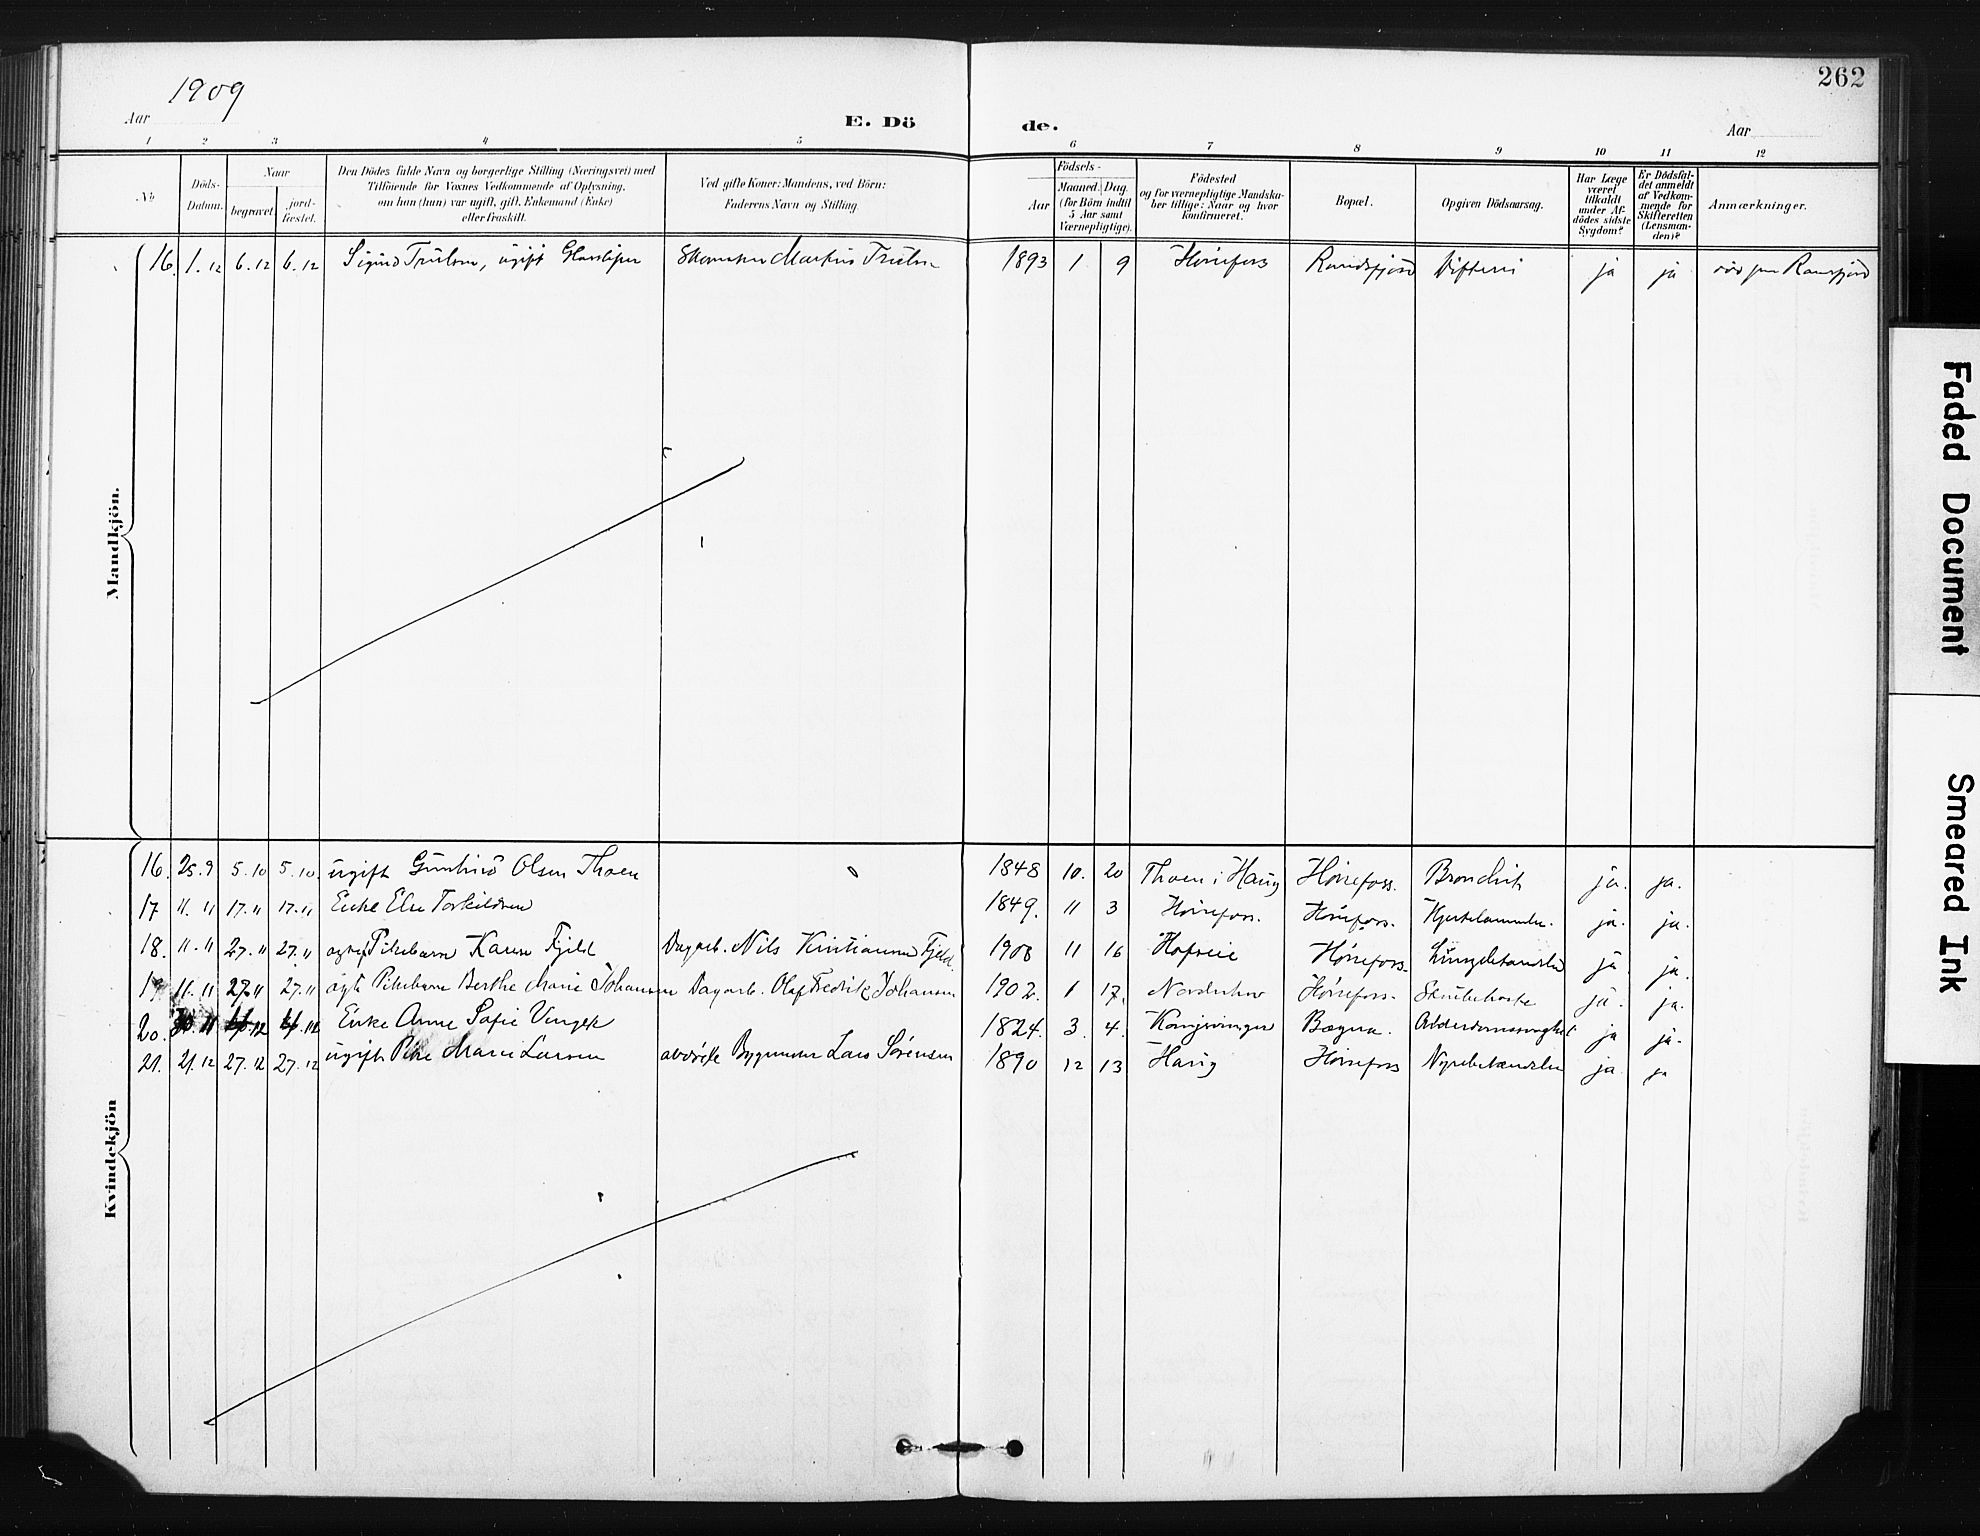 1909
262
Aar
E. Dö
de.
Aar
1 2 3 4 5 6 7 8 9 10 11 12
No
Döds-
Datum.
Naar
begravet.
jord-
fæstet.
Den Dödes fulde Navn og borgerlige Stilling (Næringsvei) med
Tilföiende for Voxnes Vedkommende af Oplysning,
om han (hun) var ugift, gift, Enkemand (Enke)
eller fraskilt.
Ved gifte Koner: Mandens, ved Börn:
Faderens Navn og Stilling.
Födsels-
Aar
Maaned. Dag.
(for Börn indtil
5 Aar samt
Værnepligtige).
Födested
og for værnepligtige Mandska-
ber tillige: Naar og hvor
konfirmeret.
Bopæl.
Opgiven Dödsaarsag.
Har Læge
været
tilkaldt
under Af-
dödes sidste
Sygdom?
Er Dödsfal-
det anmeldt
af Vedkom-
mende for
Skifteretten
(Lensman-
den)?
Anmærkninger.
Mandkjön.
16. 1.12 6.12 6.12 Sigurd Trulsen, ugift Markus Trulsen 1893 1 9 Hönefoss Randsfjord Difteri ja ja
Kvindekjön
16. 25.9 5.10 5.10. ugift Olsen Thoen 1848 10. 20 Thoen i Haug Hönefoss. ja. ja.
17 11. 11 17.11 17.11 Enke Else Torkildsen 1849. 11 3 Hönefoss. Hönefoss. ja. ja.
18. 11.11 27.11 27.11 Pikebarn Karen Fjeld Dagarb. Nils Kristiansen Fjeld. 1908 11 16 Hönefoss. ja ja.
19 11.11 27.11 27.11 Pikebarn Berthe Marie Johansen Dagarb. Olaf Fredrik Johansen 1902. 1 17. Norderhov Hönefoss. ja. ja.
20. 30.11 4.12 4.12 Enke Anne Sofie 1824. 3. 4. Kongsvinger Bægna. ja ja.
21. 21.12 27.12 27.12 ugift Pike Marie Larsen Lars Sörensen 1890 12 13 Haug Hönefoss ja ja
Faded Document
Smeared Ink